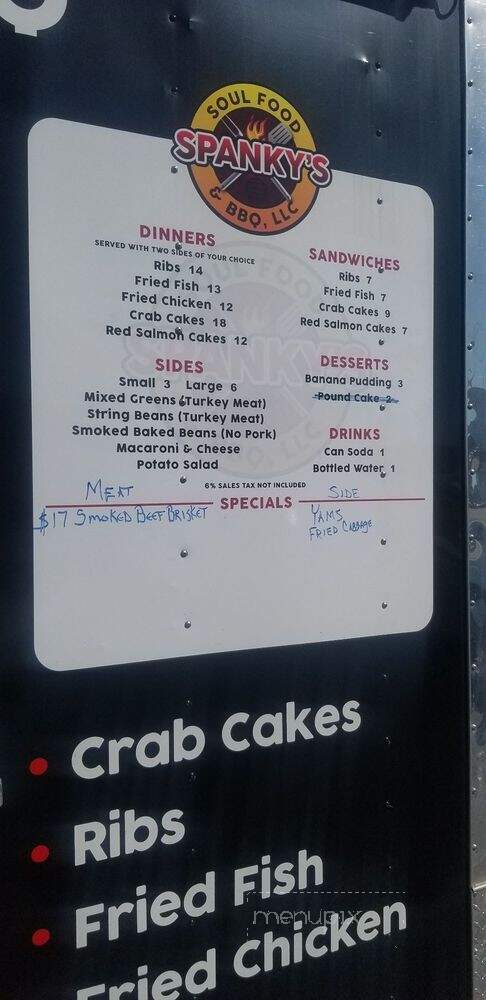 SOUL FOOD
SPANKY'S
& BBQ, LLC
DINNERS
SERVED WITH TWO SIDES OF YOUR CHOICE
Ribs 14
Fried Fish 13
Fried Chicken 12
Crab Cakes 18
Red Salmon Cakes 12
SIDES
Small 3 Large 6
Mixed Greens (Turkey Meat)
String Beans (Turkey Meat)
Smoked Baked Beans (No Pork)
Macaroni & Cheese
Potato Salad
SANDWICHES
Ribs 7
Fried Fish 7
Crab Cakes 9
Red Salmon Cakes 7
DESSERTS
Banana Pudding 3
Pound Cake 2
DRINKS
Can Soda 1
Bottled Water 1
6% SALES TAX NOT INCLUDED
SPECIALS
MEAT
$17 SMOKED BEEF BRISKET
SIDE
YAMS
FRIED CABBAGE
• Crab Cakes
• Ribs
• Fried Fish
Fried Chicken
menupix